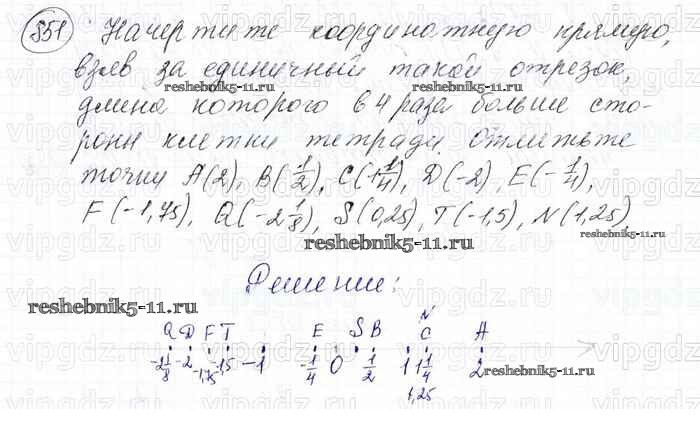 851 Начертите координатную прямую,
взяв за единичный такой отрезок,
длина которого в 4 раза больше сто-
роны клетки тетради. Отметьте
точки A(2), B(1/2), C(1 1/4), D(-2), E(-1/4),
F(-1,75), Q(-2 1/8), S(0,25), T(-1,5), N(1,25)
reshebnik5-11.ru
reshebnik5-11.ru
Решение:
reshebnik5-11.ru
N
Q D F T E S B C A
-2 1/8 -2 -1,75 -1,5 -1 -1/4 0 1/2 1 1 1/4 2
1,25
reshebnik5-11.ru
vipgdz.ru